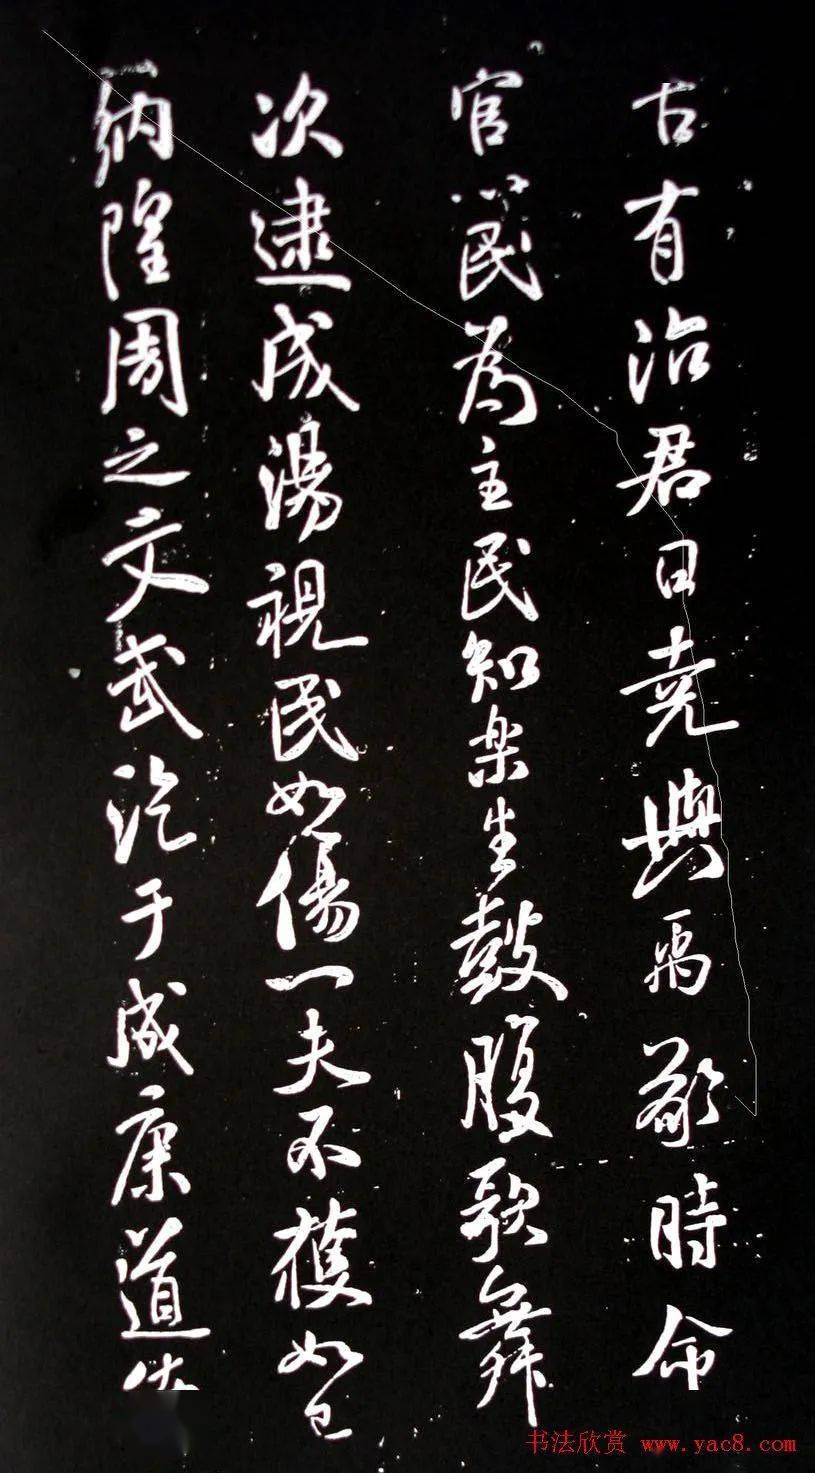 古有治君曰堯與禹時命
官以民為主民知楽生鼓腹歌舞
次逮成湯視民如傷一夫不獲如己
納隍周之文武汔于成康道
书法欣赏 www.yac8.com